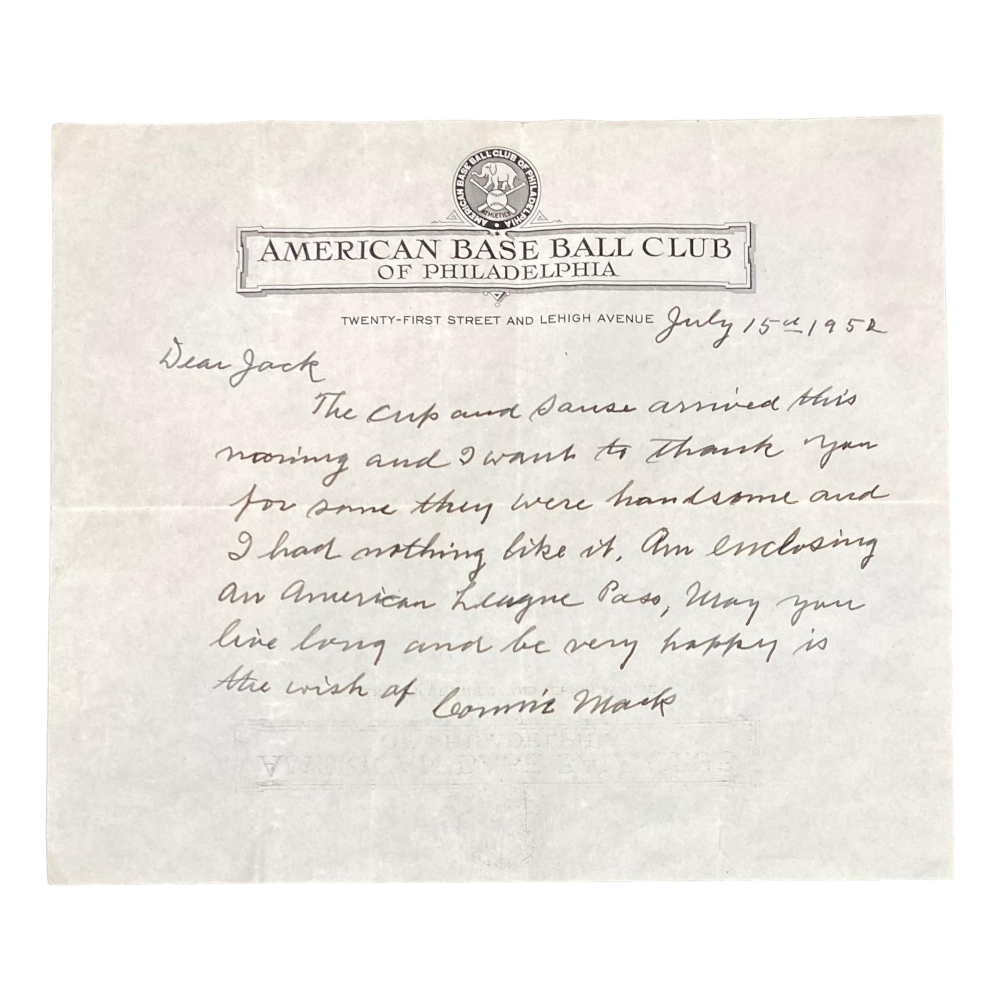 AMERICAN BASE BALL CLUB OF PHILADELPHIA
ATHLETICS
AMERICAN BASE BALL CLUB
OF PHILADELPHIA
TWENTY-FIRST STREET AND LEHIGH AVENUE July 15th 1952
Dear Jack
The cup and sause arrived this
morning and I want to thank you
for same they were handsome and
I had nothing like it. Am enclosing
an American League Pass, May you
live long and be very happy is
the wish of Connie Mack